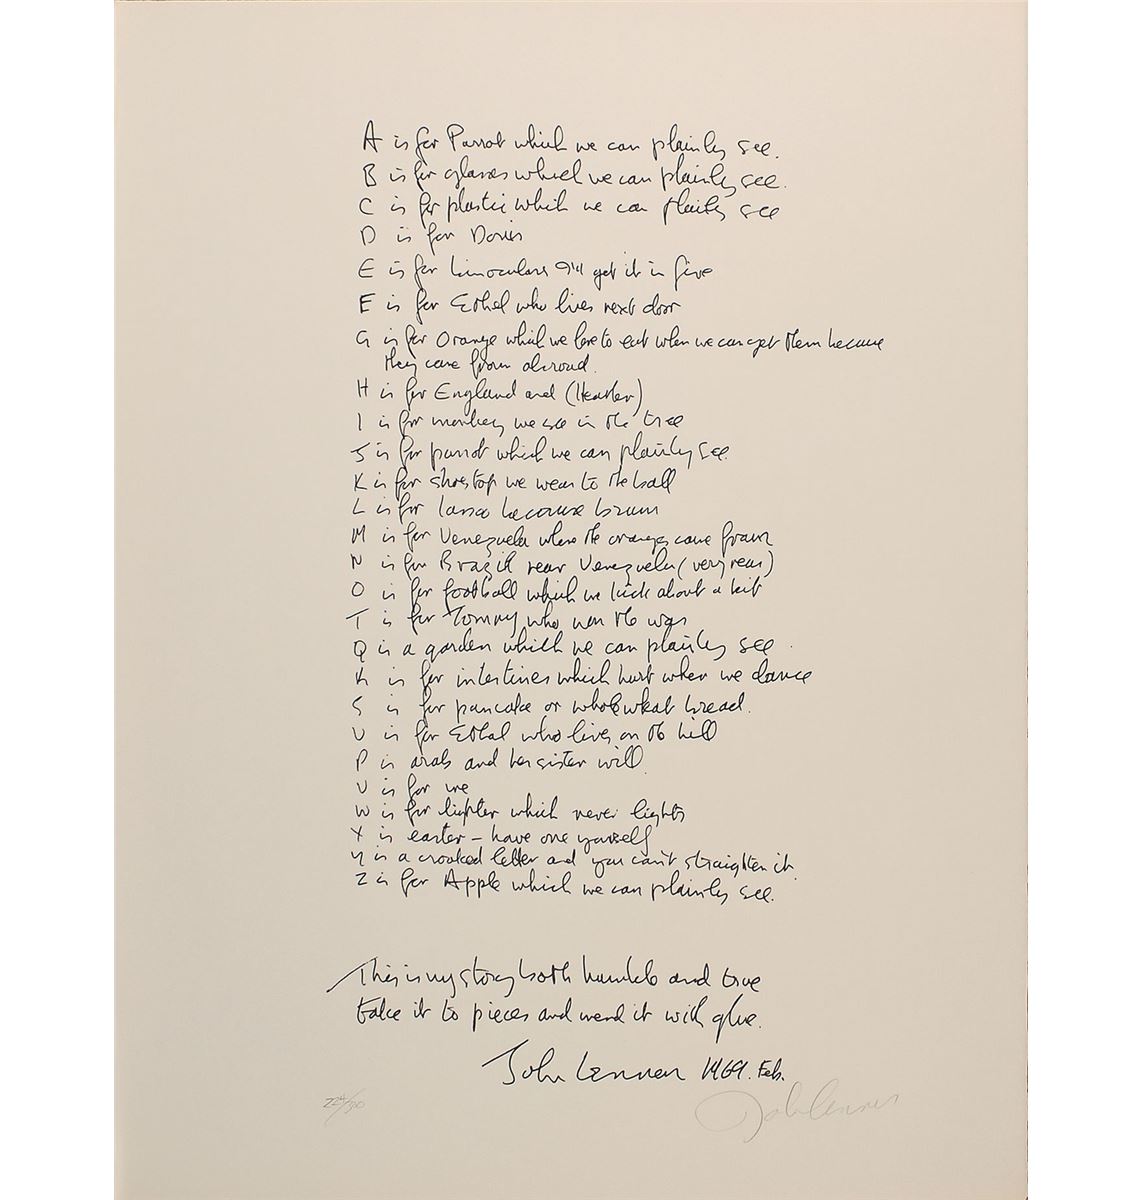 A is for Parrot which we can plainly see.
B is for glasses which we can plainly see.
C is for plastic which we can plainly see
D is for Doris
E is for binoculars I'll get it in five
E is for Ethel who lives next door
G is for Orange which we love to eat when we can get them because
they come from abroad.
H is for England and (Heather)
I is for monkey we see in the tree
J is for parrot which we can plainly see.
K is for shoetop we wear to the ball
L is for lanso because brum
M is for Venezuela where the oranges come from
N is for Brazil near Venezuela (very near)
O is for football which we kick about a bit
T is for Tommy who won the war
Q is a garden which we can plainly see.
R is for intestines which hurt when we dance
S is for pancake or wholewheat bread.
U is for Ethel who lives on the hill
P is arab and her sister will.
V is for me
W is for lighter which never lights
X is easter – have one yourself
Y is a crooked letter and you can't straighten it.
Z is for Apple which we can plainly see.
This is my story both humble and true
take it to pieces and mend it with glue.
John Lennon 1969. Feb.
John Lennon